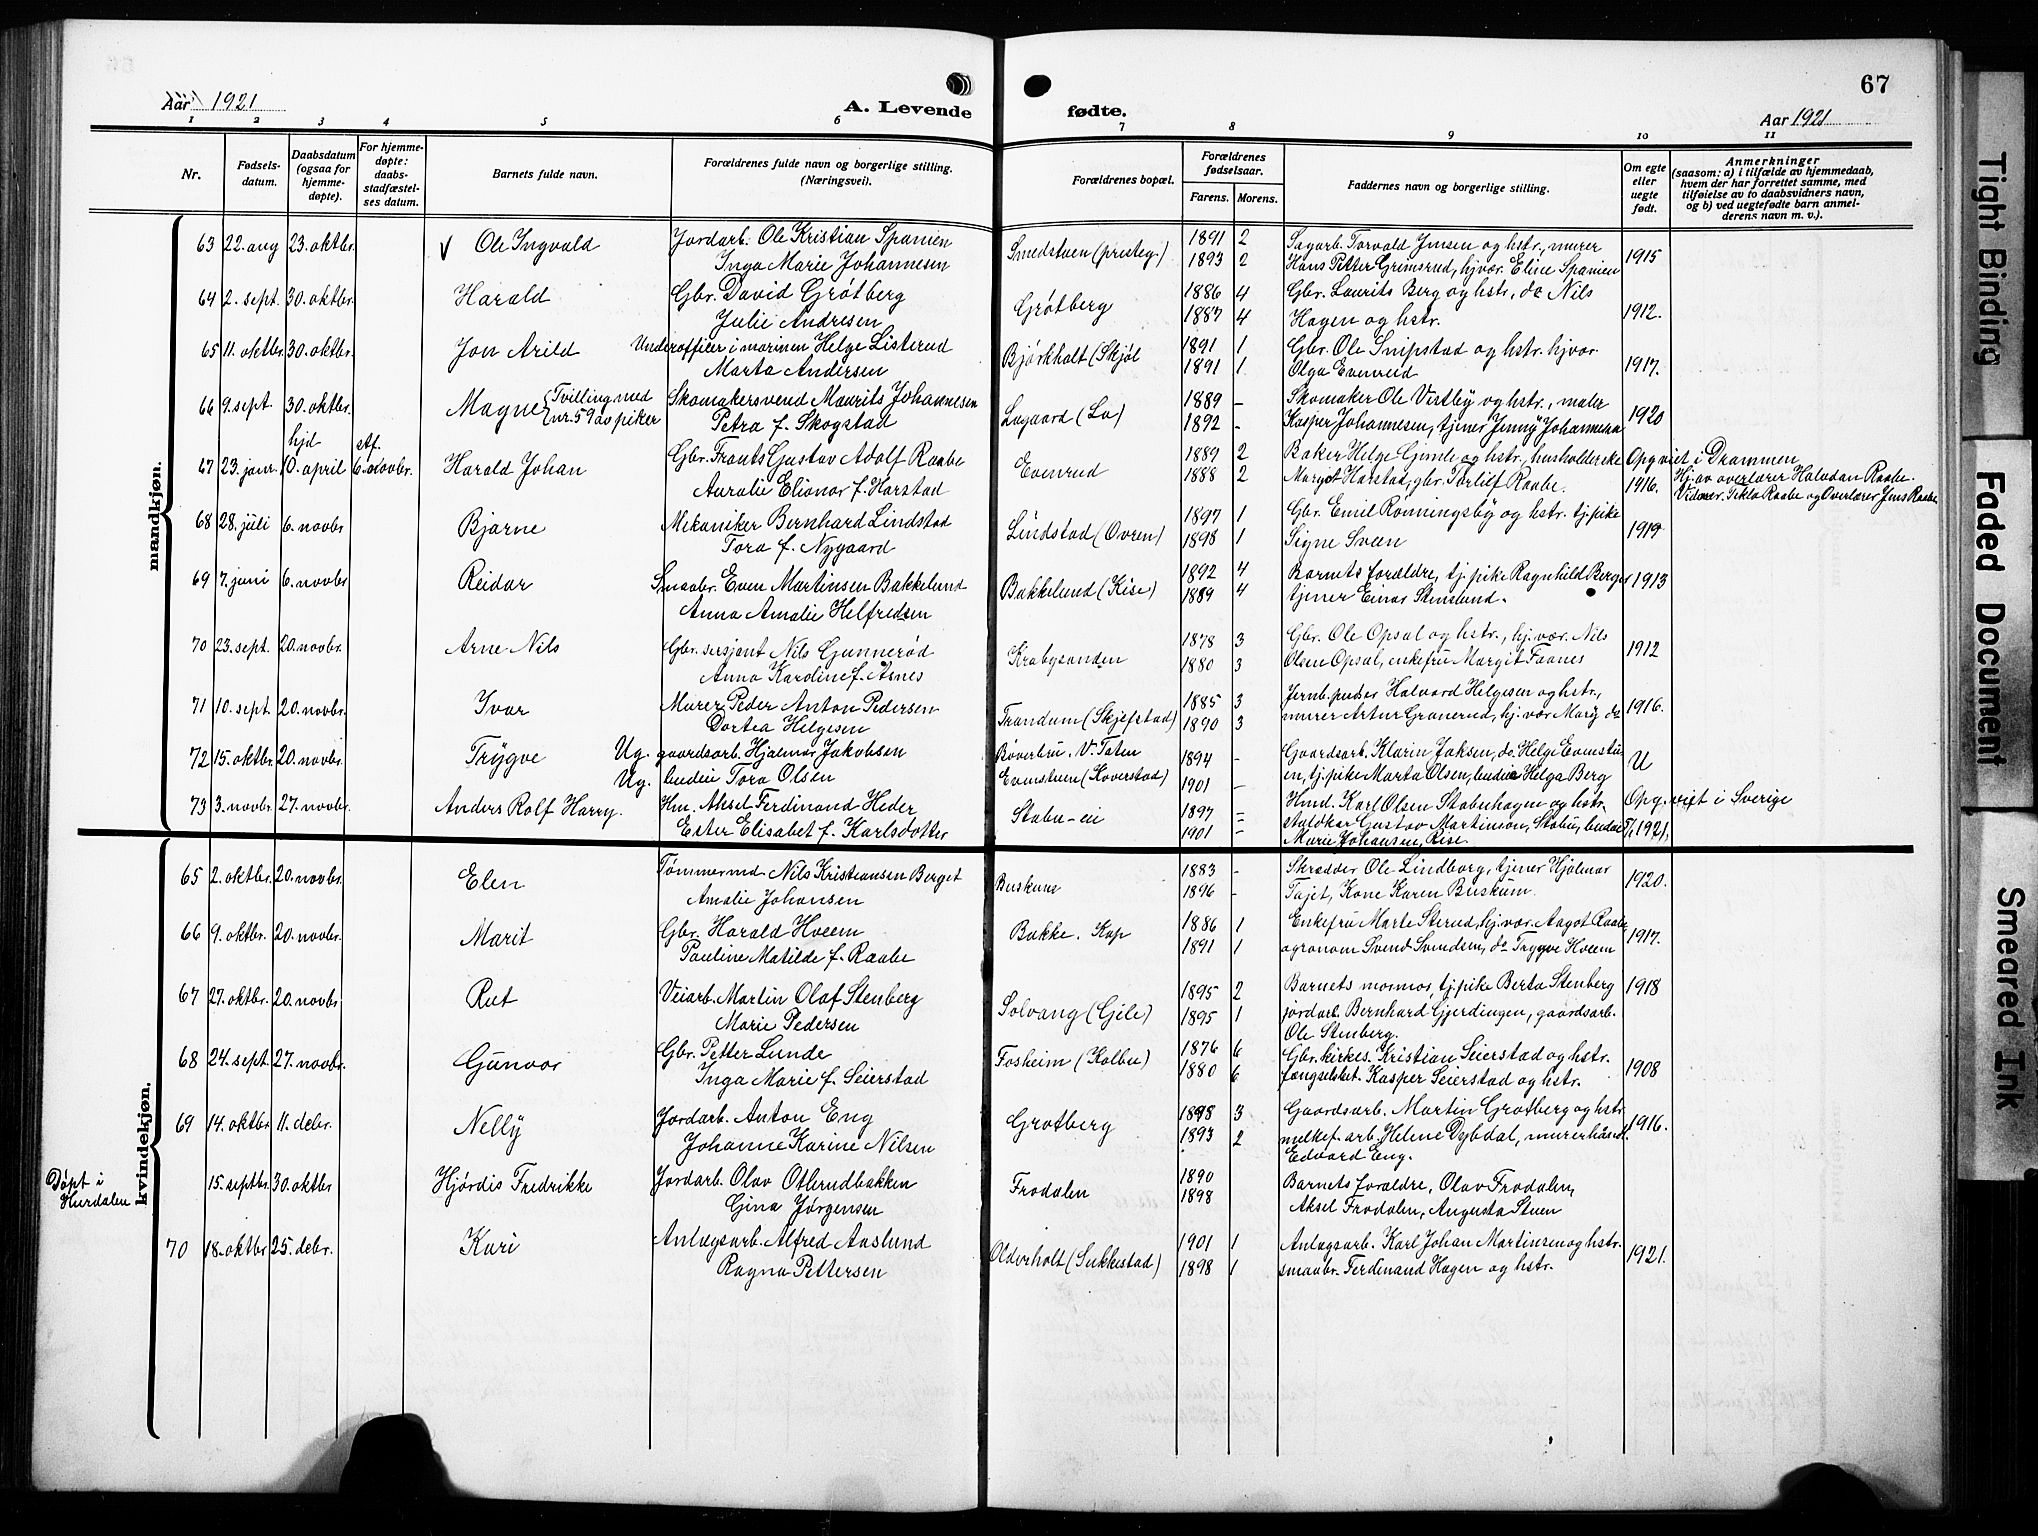 67
Aar 1921
A. Levende fødte.
Aar 1921
1 2 3 4 5 6 7 8 9 10 11
Nr.
Fødsels-
datum.
Daabsdatum
(ogsaa for
hjemme-
døpte).
For hjemme-
døpte:
daabs-
stadfæstel-
ses datum.
Barnets fulde navn.
Forældrenes fulde navn og borgerlige stilling.
(Næringsvei).
Forældrenes bopæl.
Forældrenes
fødselsaar.
Farens. Morens.
Faddernes navn og borgerlige stilling.
Om egte
eller
uegte
født.
Anmerkninger
(saasom: a) i tilfælde av hjemmedaab,
hvem der har forrettet samme, med
tilføielse av to daabsvidners navn,
og b) ved uegtefødte barn anmel-
derens navn m. v.).
mandkjøn.
63 22. aug 23. oktbr. V Ole Ingvald Jordarb. Ole Kristian Spanien Smedstuen (presteg.) 1891 2 Sagarb. Torvald Jensen og hstr., murer 1915
Inga Marie Johannesen 1893 2 Hans Petter Grimsrud, hj.vær. Eline Spanien
64 2. sept. 30. oktbr. Harald Gbr. David Grøtberg Grøtberg 1886 4 Gbr. Laurits Berg og hstr., do Nils 1912.
Julie Andresen 1887 4 Hagen og hstr.
65 11. oktbr. 30. oktbr. Jon Arild Underofficer i marinen Helge Listerud Bjørkholt (Skjøl 1891 1 Gbr. Ole Snipstad og hstr. hjvær. 1917.
Marta Andersen 1891 1 Olga Evenreid
66 9. sept. 30. oktbr. Magne (Tvilling med Skomakersvend Maurits Johannesen Lagaard (Lo) 1889 - Skomaker Ole Vestby og hstr., maler 1920
nr. 59 av piker Petra f. Skogstad 1892 - Kasper Johannesen, tjener Jenny Johannesen
hjd St.
67 23. janr. 10. april 6. novbr. Harald Johan Gbr. Frants Gustav Adolf Raabe Evenrud 1889 2 Baker Helge Gimle og hstr., husholderske Opg. viet i Drammen
Auralie Elionor f. Harstad 1888 2 Margot Harstad, gbr. Torlief Raabe. 1916. Hj. av overlærer Halvdan Raabe.
Vidner: Tekla Raabe og Overlærer Jens Raabe
68 28. juli 6. novbr Bjarne Mekaniker Bernhard Lindstad Lindstad (Ovren) 1897 1 Gbr. Emil Ronningsby og hstr. tj. pike 1919
Tora f. Nygaard 1898 1 Signe Sveen
69 7. juni 6. novbr Reidar Smaabr. Even Martinsen Bakkelund Bakkelund (Kise) 1892 4 Barnets forældre, tj. pike Ragnhild Berget 1913
Anna Amalie Helfredsen 1889 4 tjener Einar Stenslund.
70 23. sept. 20. novbr. Arne Nils Gbr. sersjant Nils Gunnerød Krabysanden 1878 3 Gbr. Ole Opsal og hstr., hj. vær. Nils 1912
Anna Kardine f. Asnes 1880 3 Olsen Opsal, enkefru Margit Faanes
71 10. sept. 20. novbr. Ivar Murer Peder Anton Pedersen Trandum (Skjefstad) 1885 3 Jernb. pudser Halvard Helgesen og hstr., 1916.
Dortea Helgesen 1890 3 murer Artur Granerud, hj. vær Mary do
72 15. oktbr. 20. novbr. Trygve Ug. gaardsarb. Hjalmar Jakobsen Bøverbru. V. Toten 1894 - Gaardsarb. Klarin Jaksen, do Helge Evenstu- U
Ug. budeie Tora Olsen Evenstuen (Hoverstad) 1901 - en, tj. pike Marta Olsen, budeie Helga Berg
73 3. novbr. 27. novbr. Anders Rolf Harry. Hm. Aksel Ferdinand Heder Stabu-eie 1897 - Hmd. Karl Olsen Stabuhagen og hstr. Opg. viet i Sverige
Ester Elisabet f. Karlsdotter 1901 - staldkar Gustav Martinson, Stabu, budeie 5/1 1921.
Marie Johansen, Kise.
kvindekjøn.
65 2. oktbr. 20. novbr. Elen Tømmermd Nils Kristiansen Berget Buskum 1883 - Skrædder Ole Lindborg, tjener Hjalmar 1920.
Amalie Johansen 1896 - Tajet, Kone Karen Buskum.
66 9. oktbr. 20. novbr. Marit Gbr. Harald Hveem Bakke. Kap 1886 1 Enkefru Marte Sterud, hj. vær. Aagot Raabe 1917.
Pauline Matilde f. Raabe 1891 1 agronom Svend Svendsen, do Trygve Hveem
67 27. oktbr. 20. novbr Rut Veiarb. Martin Olaf Stenberg Solvang (Gile) 1895 2 Barnets mormor, tj. pike Berta Stenberg 1918
Marie Pedersen 1895 1 jordarb. Bernhard Gjerdingen, gaardsarb.
Ole Stenberg.
68 24. sept. 27. novbr. Gunvor Gbr. Petter Lunde Fosheim (Kolbu) 1876 6 Gbr. kirkes. Kristian Seierstad og hstr. 1908
Inga Marie f. Seierstad 1880 6 fængselsbet. Kasper Seierstad og hstr.
69 14. oktbr 11. debr. Nelly Jordarb. Anton Eng Grøtberg 1898 3 Gaardsarb. Martin Grøtberg og hstr 1916.
Johanne Karine Nilsen 1893 2 melkef. arb. Helene Dybdal, murerhåndl.
Edvard Eng.
Døpt i
Hurdalen 15. septbr. 30. oktbr Hjørdis Fredrikke Jordarb. Olav Otlerudbakken Frodalen 1890 Barnets forældre, Olav Frodalen,
Gina Jørgensen 1898 Aksel Frodalen, Augusta Stuen
70 18. oktbr 25. debr. Kari Anlægsarb. Alfred Aaslund Olderholt (Sukkestad) 1901 1 Anlægsarb. Karl Johan Martinsen og hstr. 1921.
Ragna Pettersen 1898 1 smaabr. Ferdinand Hagen og hstr.
Tight Binding
Faded Document
Smeared Ink